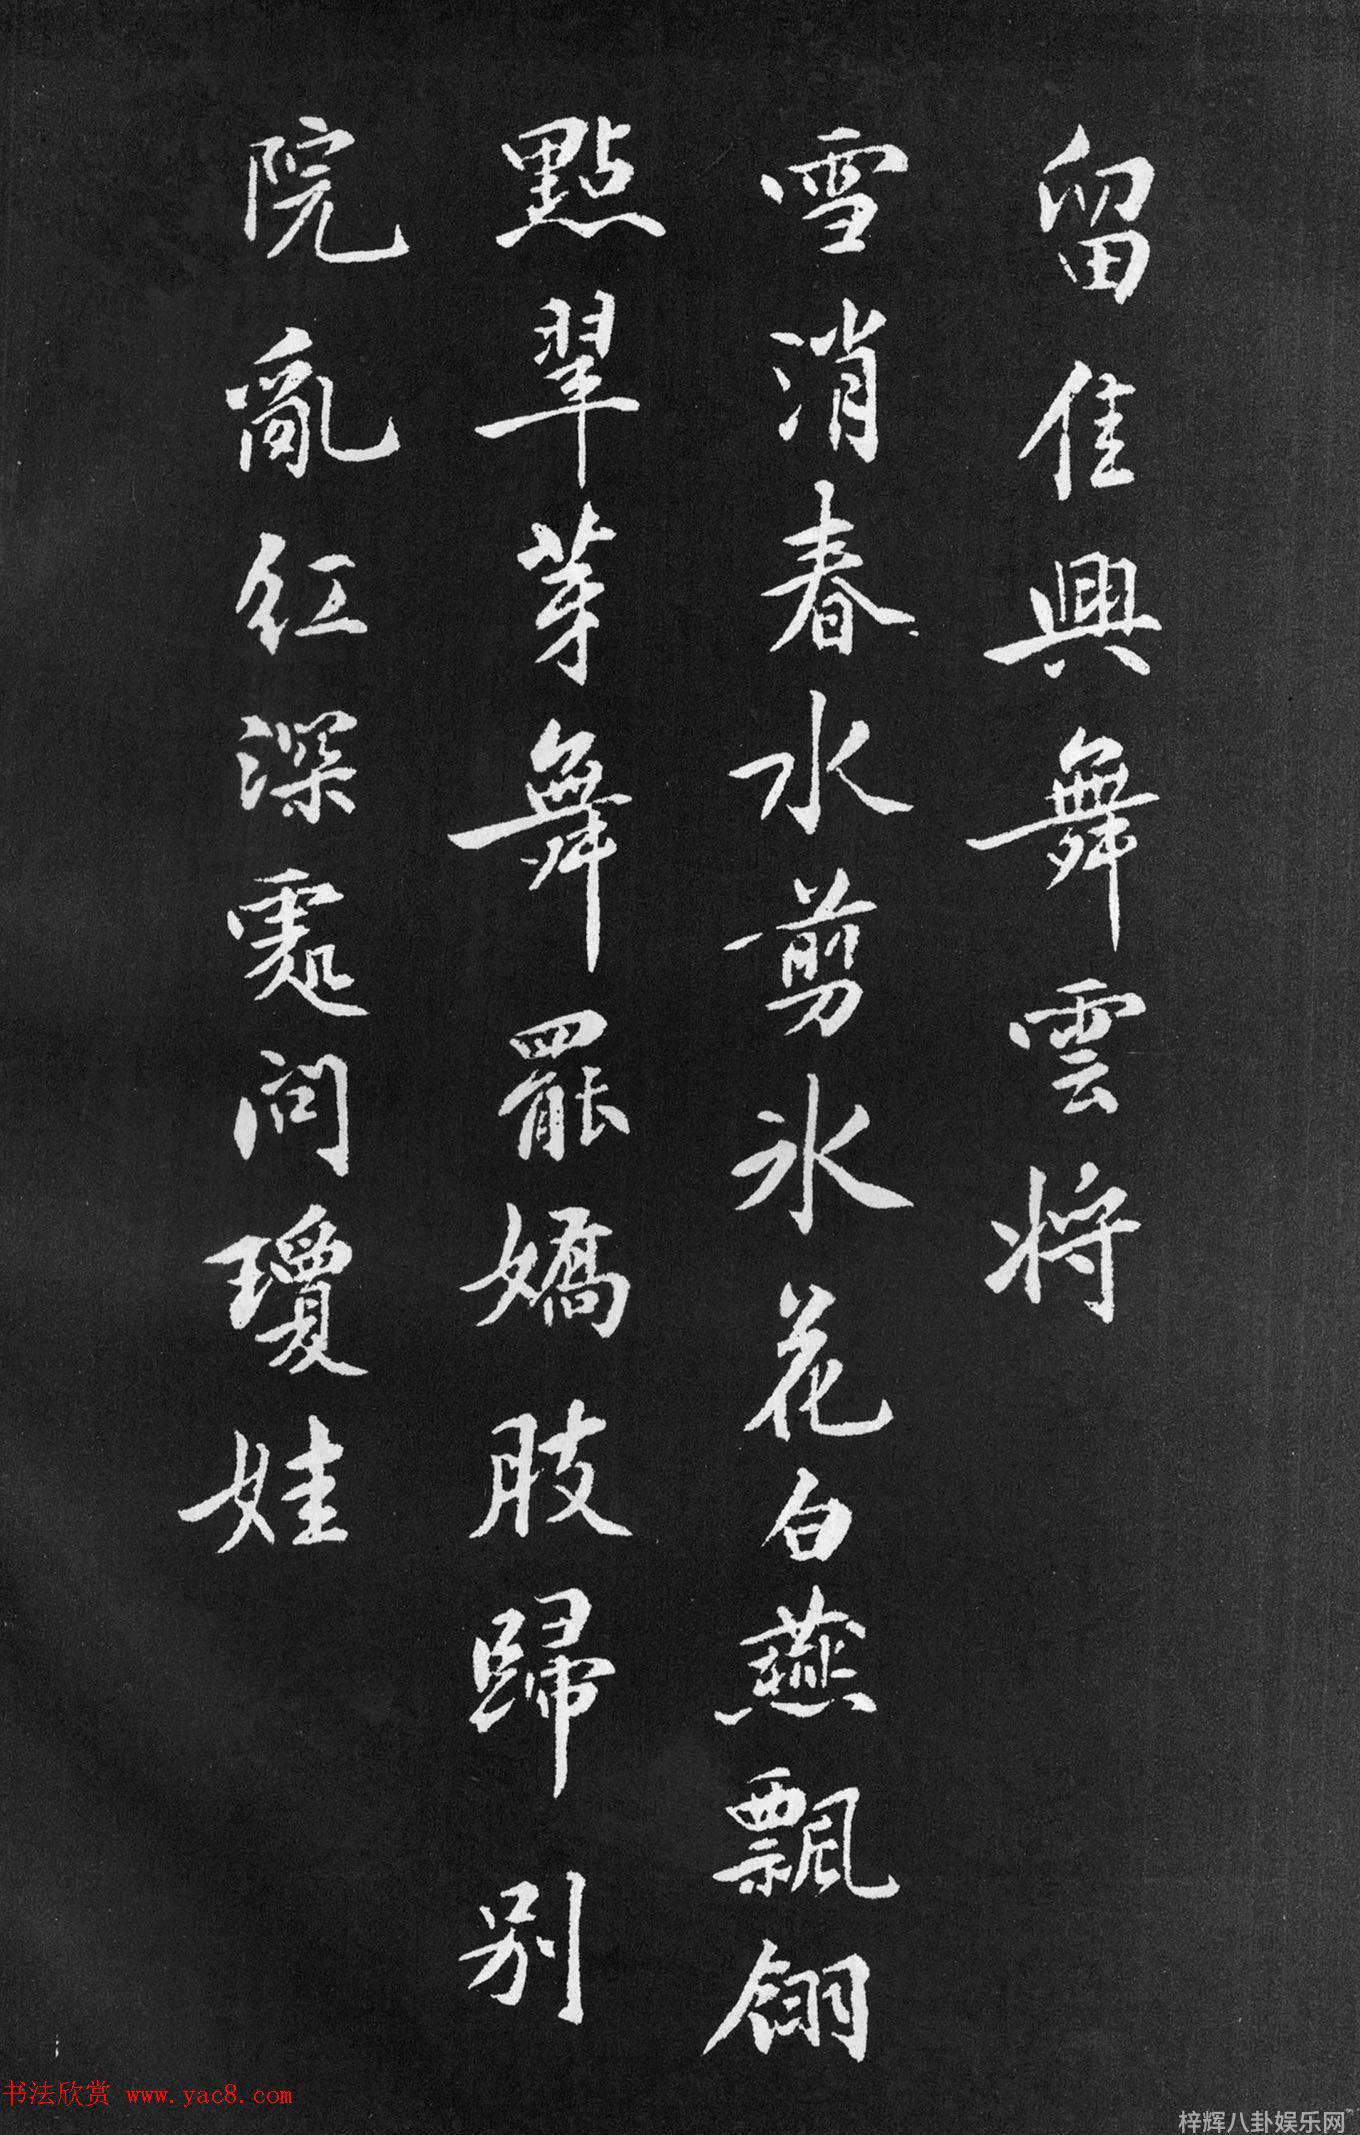 留佳興舞雲將
雪消春水剪冰花白燕飄翎
點翠芽舞罷嬌肢歸别
院亂紅深處問瓊娃
书法欣赏 www.yac8.com
梓辉八卦娱乐网